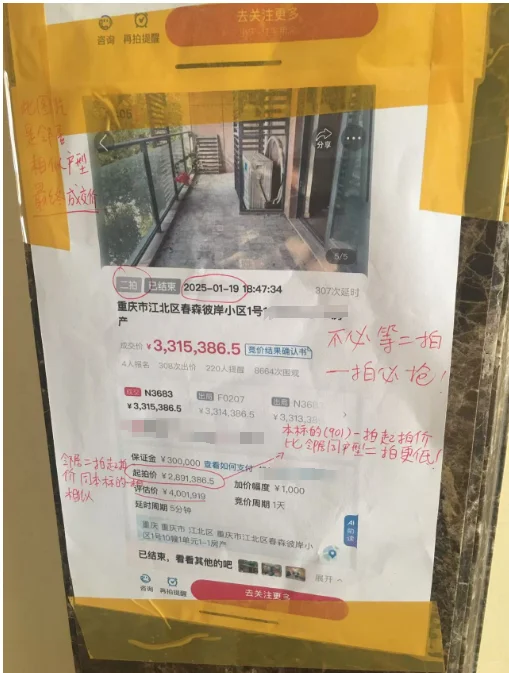 去关注更多
咨询 再拍提醒
此图片
户型
最终成交价
分享
5/5
二拍 已结束 2025-01-19 18:47:34 307次延时
重庆市江北区春森彼岸小区1号
产
成交价 ¥3,315,386.5 竞价结果确认书
4人报名 308次出价 220人提醒 8664次围观
不必等二拍
一拍必抢！
成交 N3683 出局 F0207 出局
¥3,315,386.5 ¥3,314,386.5 ¥3,313,38
本标的(901)一拍起拍价
比邻居同户型二拍更低！
保证金 ¥300,000 查看如何支付
起拍价 ¥2,891,386.5 加价幅度 ¥1,000
评估价 ¥4,001,919 竞价周期 1天
延时周期 5分钟
邻居二拍起拍
价同本标的一拍
相似
重庆 重庆市 江北区 重庆市江北区春森彼岸小
区1号10幢1单元1-1房产
AI
助读
已结束，看看其他的吧 展开
咨询 再拍提醒 去关注更多